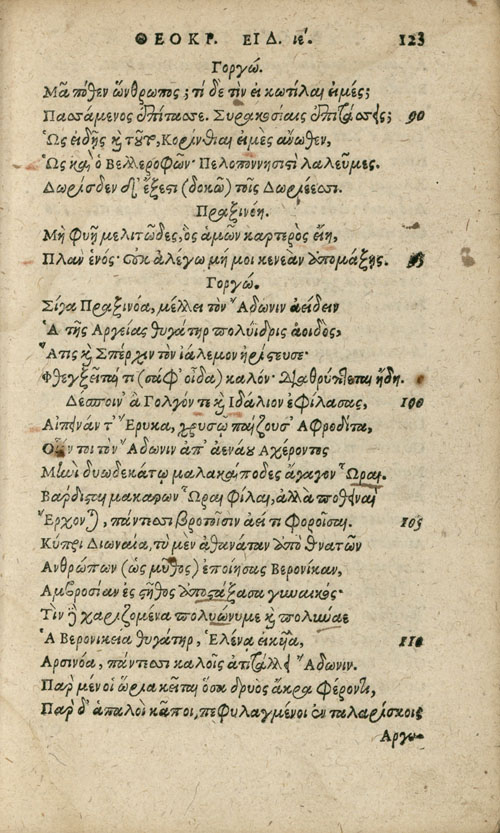 ΘΕΟΚΡ. ΕΙΔ. ιέ. 123
Γοργώ.
Μᾶ πόθεν ὤνθρωπος; τί δὲ τὶν εἰ κωτίλαι εἰμές;
Πασσάμενος ἐπίτασσε. Συρακοσίαις ἐπιτάσσεις; 90
Ὡς εἰδῇς καὶ τοῦτο, Κορίνθιαι εἰμὲς ἄνωθεν,
Ὡς καὶ ὁ Βελλεροφῶν· Πελοποννησιστὶ λαλεῦμες.
Δωρίσδεν δ' ἔξεστι (δοκῶ) τοῖς Δωριέεσσι.
Πραξινόη.
Μὴ φυῇ μελιτῶδες, ὃς ἁμῶν καρτερὸς εἴη,
Πλὰν ἑνός· οὐκ ἀλέγω μή μοι κενεὰν ἀπομάξῃς. 95
Γοργώ.
Σίγα Πραξινόα, μέλλει τὸν Ἄδωνιν ἀείδειν
Ἁ τῆς Ἀργείας θυγάτηρ πολύϊδρις ἀοιδὸς,
Ἅτις καὶ Σπέρχιν τὸν ἰάλεμον ἠρίστευσε·
Φθεγξεῖταί τι (σάφ' οἶδα) καλόν· διαθρύπτεται ἤδη.
Δέσποιν' ἃ Γολγόν τε καὶ Ἰδάλιον ἐφίλασας, 100
Αἰπεινάν τ' Ἔρυκα, χρυσῷ παίζουσ' Ἀφροδίτα,
Οἷόν τοι τὸν Ἄδωνιν ἀπ' ἀενάου Ἀχέροντος
Μηνὶ δυωδεκάτῳ μαλακαίποδες ἄγαγον Ὧραι.
Βάρδισται μακάρων Ὧραι φίλαι, ἀλλὰ ποθειναὶ
Ἔρχονται, πάντεσσι βροτοῖσιν ἀεί τι φοροῖσαι. 105
Κύπρι Διωναία, τὺ μὲν ἀθανάταν ἀπὸ θνατῶν
Ἀνθρώπων (ὡς μῦθος) ἐποίησας Βερονίκαν,
Ἀμβροσίαν ἐς στῆθος ἀποστάξασα γυναικός·
Τὶν δὲ χαριζομένα πολυώνυμε καὶ πολύναε
Ἁ Βερονικεία θυγάτηρ, Ἑλένᾳ εἰκυῖα, 110
Ἀρσινόα, πάντεσσι καλοῖς ἀτιτάλλει Ἄδωνιν.
Πὰρ μέν οἱ ὥρια κεῖται ὅσα δρυὸς ἄκρα φέροντι,
Πὰρ δ' ἁπαλοὶ κᾶποι, πεφυλαγμένοι ἐν ταλαρίσκοις
Ἀργυ-